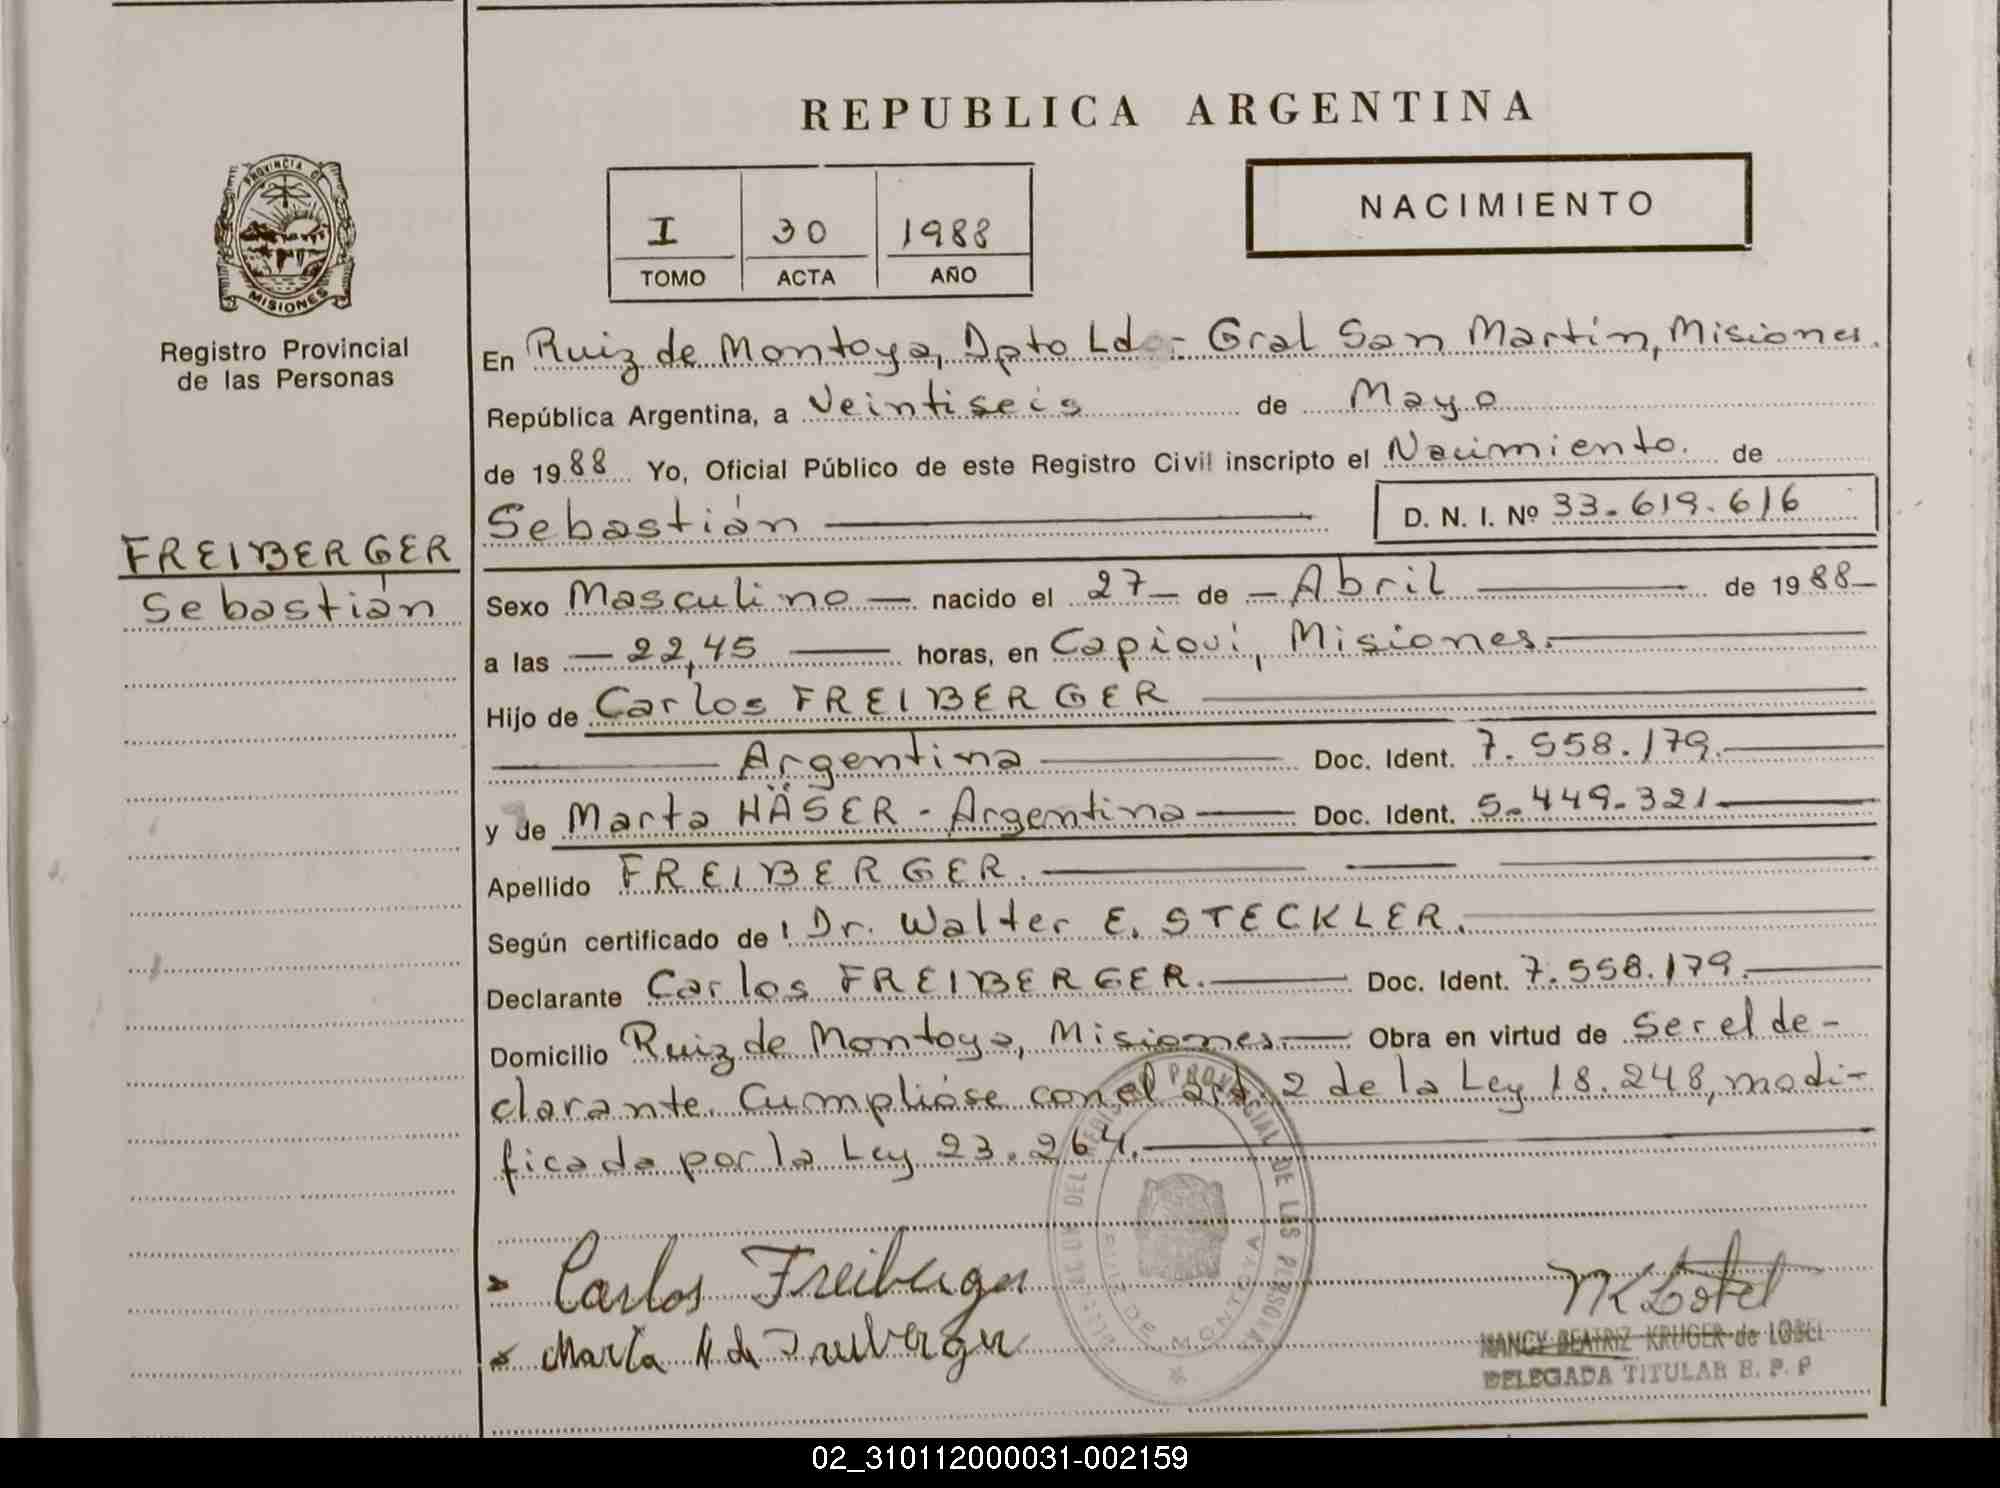 REPUBLICA ARGENTINA
PROVINCIA DE
MISIONES
Registro Provincial
de las Personas
I 30 1988
TOMO ACTA AÑO
NACIMIENTO
En Ruiz de Montoya, Dpto Ld - Gral San Martín, Misiones.
República Argentina, a Veintiseis de Mayo
de 1988 Yo, Oficial Público de este Registro Civil inscripto el Nacimiento. de
Sebastián D. N. I. Nº 33.619.616
FREIBERGER
Sebastián
Sexo Masculino — nacido el 27 — de — Abril — de 1988 —
a las — 22,45 — horas, en Capioví, Misiones. —
Hijo de Carlos FREIBERGER
— Argentina — Doc. Ident. 7.558.179. —
y de Marta HÄSER - Argentina — Doc. Ident. 5.449.321 —
Apellido FREIBERGER. —
Según certificado de Dr. Walter E. STECKLER. —
Declarante Carlos FREIBERGER. — Doc. Ident. 7.558.179. —
Domicilio Ruiz de Montoya, Misiones. — Obra en virtud de ser el de-
clarante. Cumplióse con el art. 2 de la Ley 18.248, modi-
ficada por la Ley 23.264. —
DEL REGISTRO PROVINCIAL DE LAS PERSONAS
RUIZ DE MONTOYA
Carlos Freiberger
Marta H de Freiberger
NK Lobel
NANCY BEATRIZ KRUGER de LOBEL
DELEGADA TITULAR R. P. P
02_310112000031-002159